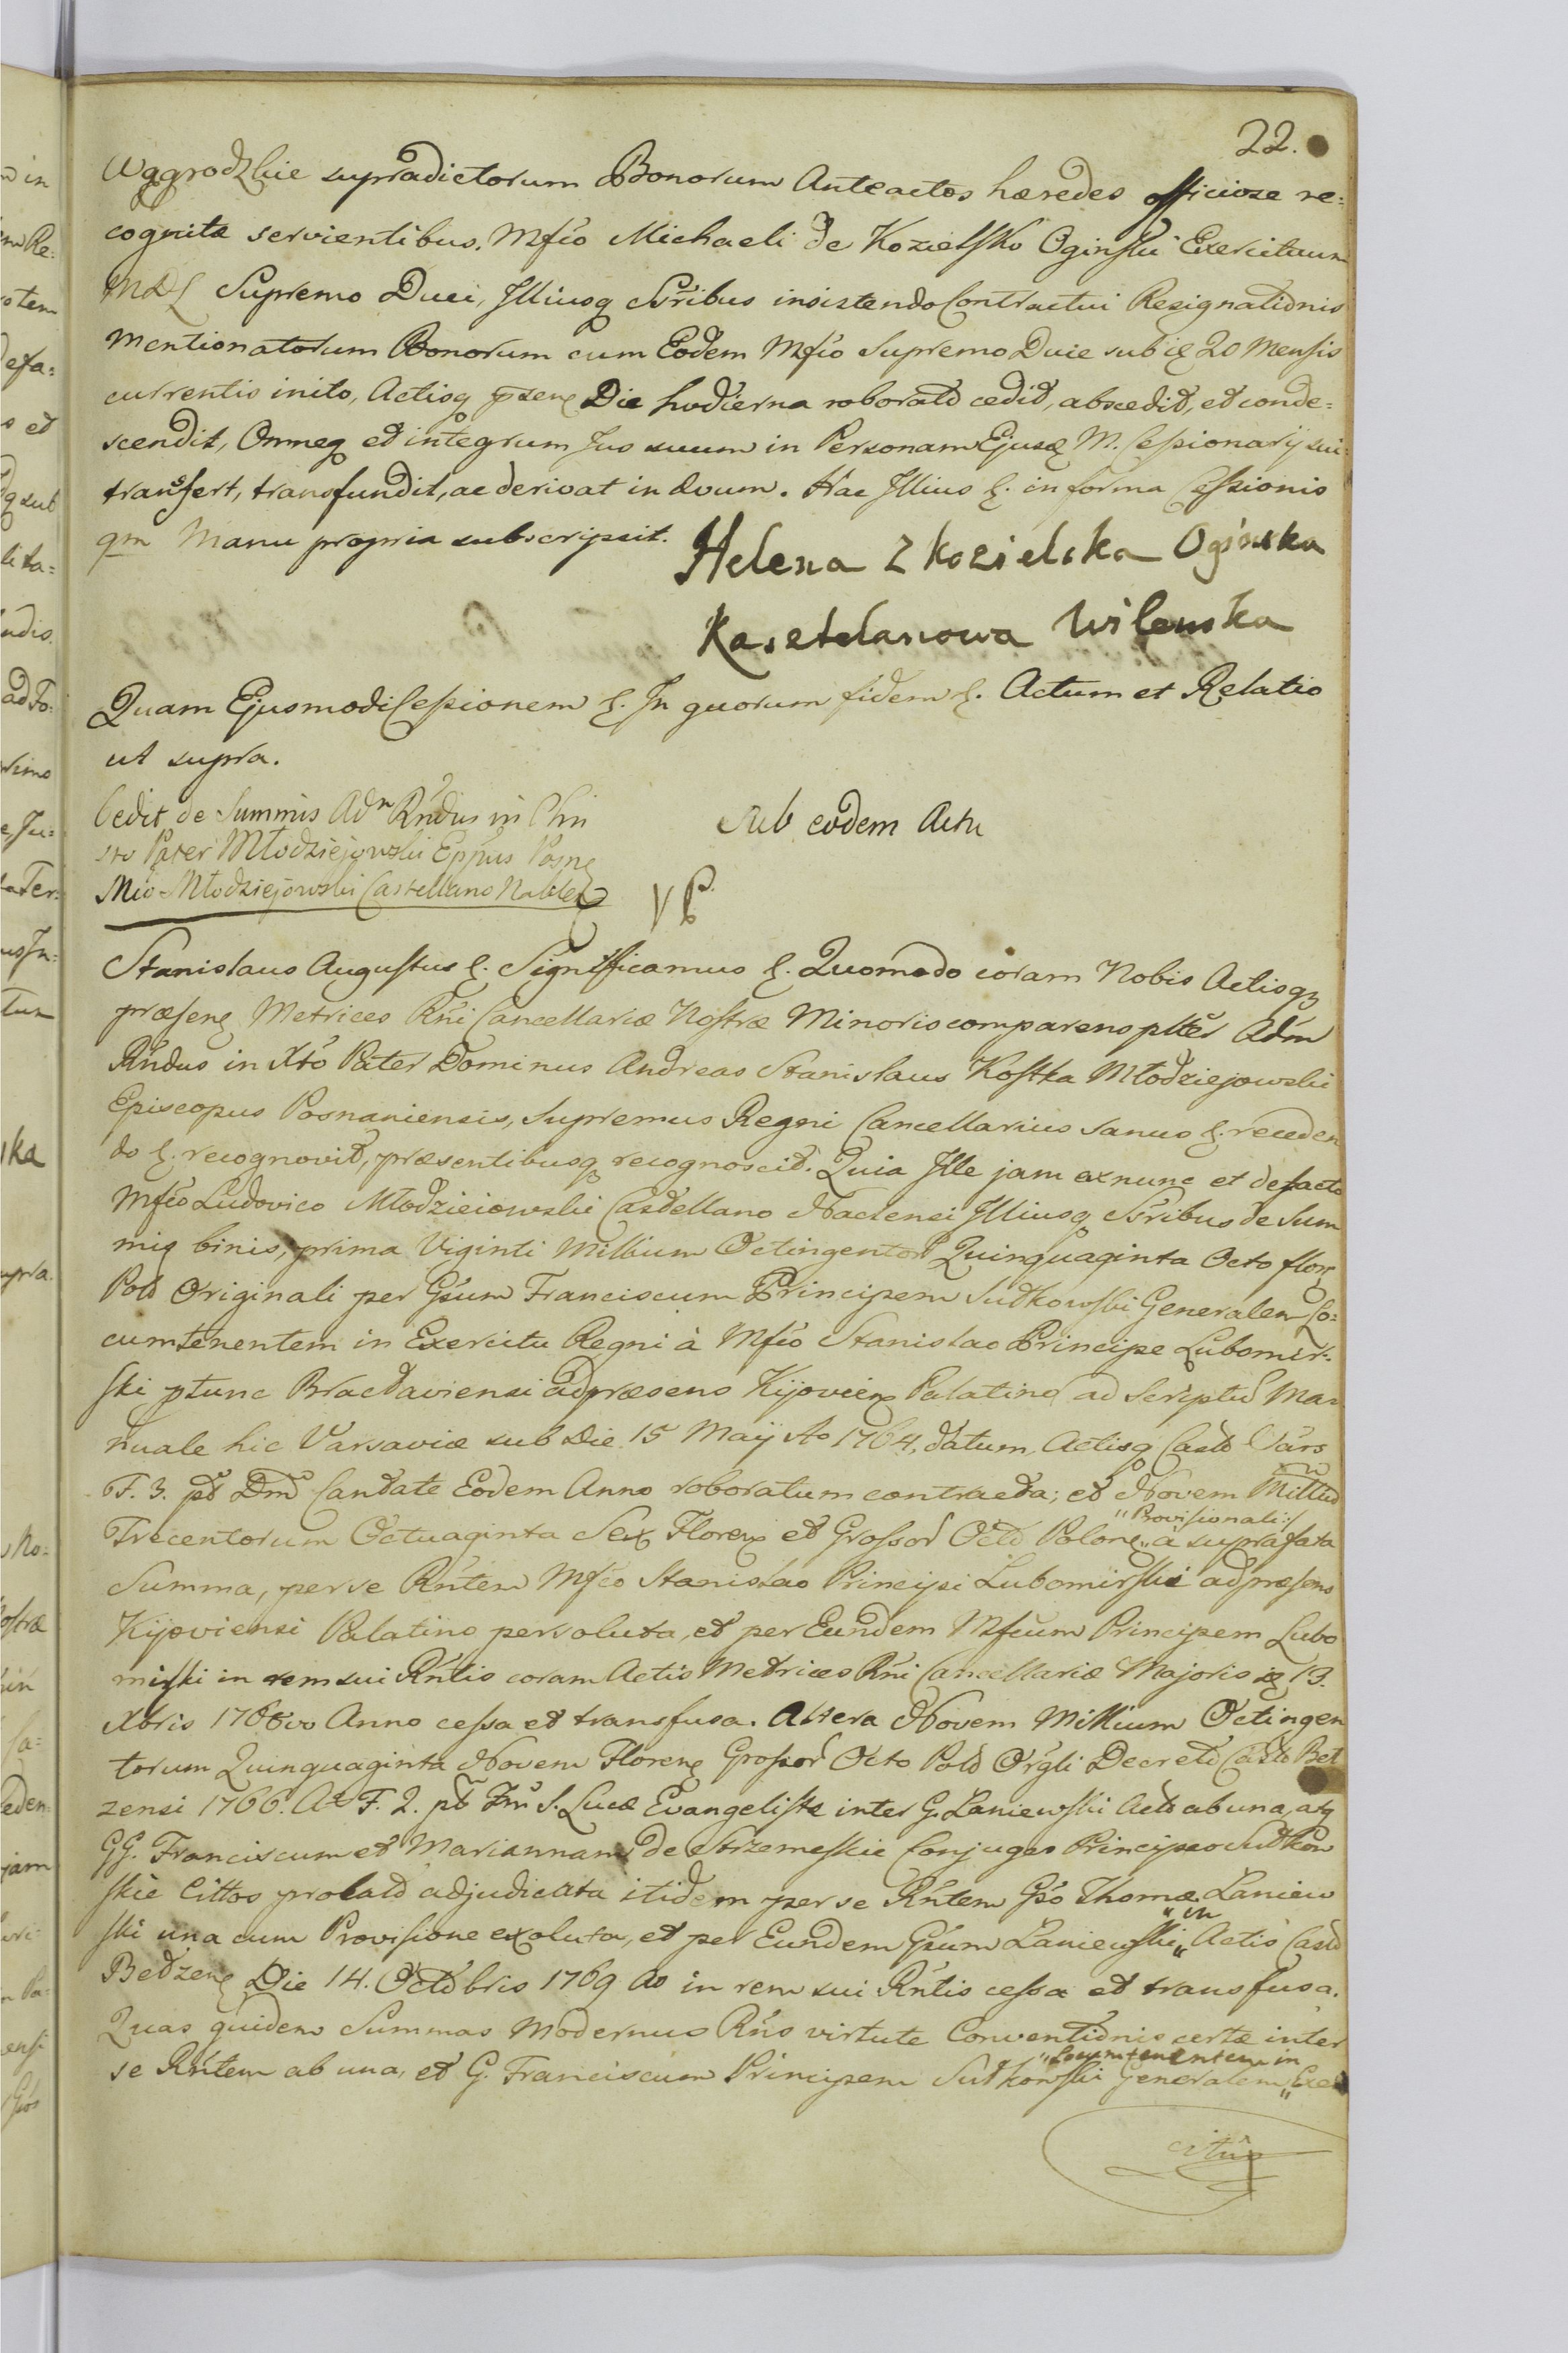 22.
Wggrodzkie supradictorum Bonorum Anteactos hæredes officiose re:
cognitæ servientibus. Mfco Michaeli de Kozielsko Oginski Exercituum
MDL Supremo Duci, Illiusq Ssribus insistendo Contractui Resignationis
mentionatorum Bonorum cum Eodem Mfco Supremo Duce sub 20 Mensis
currentis inito, Actisq psen Die hodierna roborato cedit, abscedit, et conde=
scendit, Omneq et integrum Jus suum in Personam Ejusd M. Cessionarij sui
transfert, transfundit, ac derivat in ævum. Hac Illius &. in forma Cessionis
qm Manu propria subscripsit. Helena z kozielska Oginska
Kasztelanowa Wilenska
Quam Ejusmodi Cessionem &. In quorum fidem &. Actum et Relatio
ut supra.
Cedit de Summis Adm Rndus in Chri
sto Pater Młodziejowski Eppus Posn
Mco Młodziejowski Castellano Nakle
Sub eodem Actu
Stanislaus Augustus &. Significamus &. Quomodo coram Nobis Actisq
præsen Metrices Rni Cancellariæ Nostræ Minoris comparens plter Adm
Rndus in Xto Pater Dominus Andreas Stanislaus Kostka Młodziejowski
Episcopus Posnaniensis, Supremus Regni Cancellarius sanus &. receden
do &. recognovit, præsentibusq recognoscit. Quia Ille jam ex nunc et de facto
Mfco Ludovico Młodzieiowski Castellano Naclensi Illiusq Ssribus de Sum
mis binis, prima Viginti Millium Octingentor Quinquaginta Octo flor
Pol Originali per Gsum Franciscum Principem Sułkowski Generalem Lo=
cumtenentem in Exercitu Regni à Mfco Stanislao Principe Lubomir=
ski ptunc Bracłaviensi ad præsens Kijovien Palatino ad Scriptum Ma=
nuale hic Varsaviæ sub Die 15 Maij Ao 1764, datum, Actisq Cast Vars
F. 3. pt Dm Cantate Eodem Anno roboratum contracta; et Novem Millium
Trecentorum Octuaginta Sex Floren et Grossor Octo Polon "Provisionali:/ à supra fata
Summa, per se Rntem Mfco Stanislao Principi Lubomirski ad præsens
Kijoviensi Palatino persoluta, et per Eundem Mfcum Principem Lubo
mirski in rem sui Rntis coram Actis Metrices Rni Cancellariæ Majoris 13.
Xbris 1766to Anno cessa et transfusa. Altera Novem Millium Octingen
torum Quinquaginta Novem Floren Grossor Octo Pol Orgli Decreto Cast Bel
zensi 1766. Ao F. 2. pt Fm S. Lucæ Evangelistæ inter G. Laniewski Act ab una, atq
GG. Franciscum et Mariannam de Strzemeskie Conjuges Principes Sułkow
skie Cittos prolato adjudicata itidem per se Rntem Gso Thomæ Laniew
ski una cum Provisione exoluta, et per Eundem Gsum Laniewski "in Actis Cast
Bełzen Die 14. Octobris 1769 Ao in rem sui Rntis cessa et transfusa.
Quas quidem Summas Modernus Rns virtute Conventionis certæ inter
se Rntem ab una, et G. Franciscum Principem Sułkowski Generalem "Locumtenentem in Exer
citus